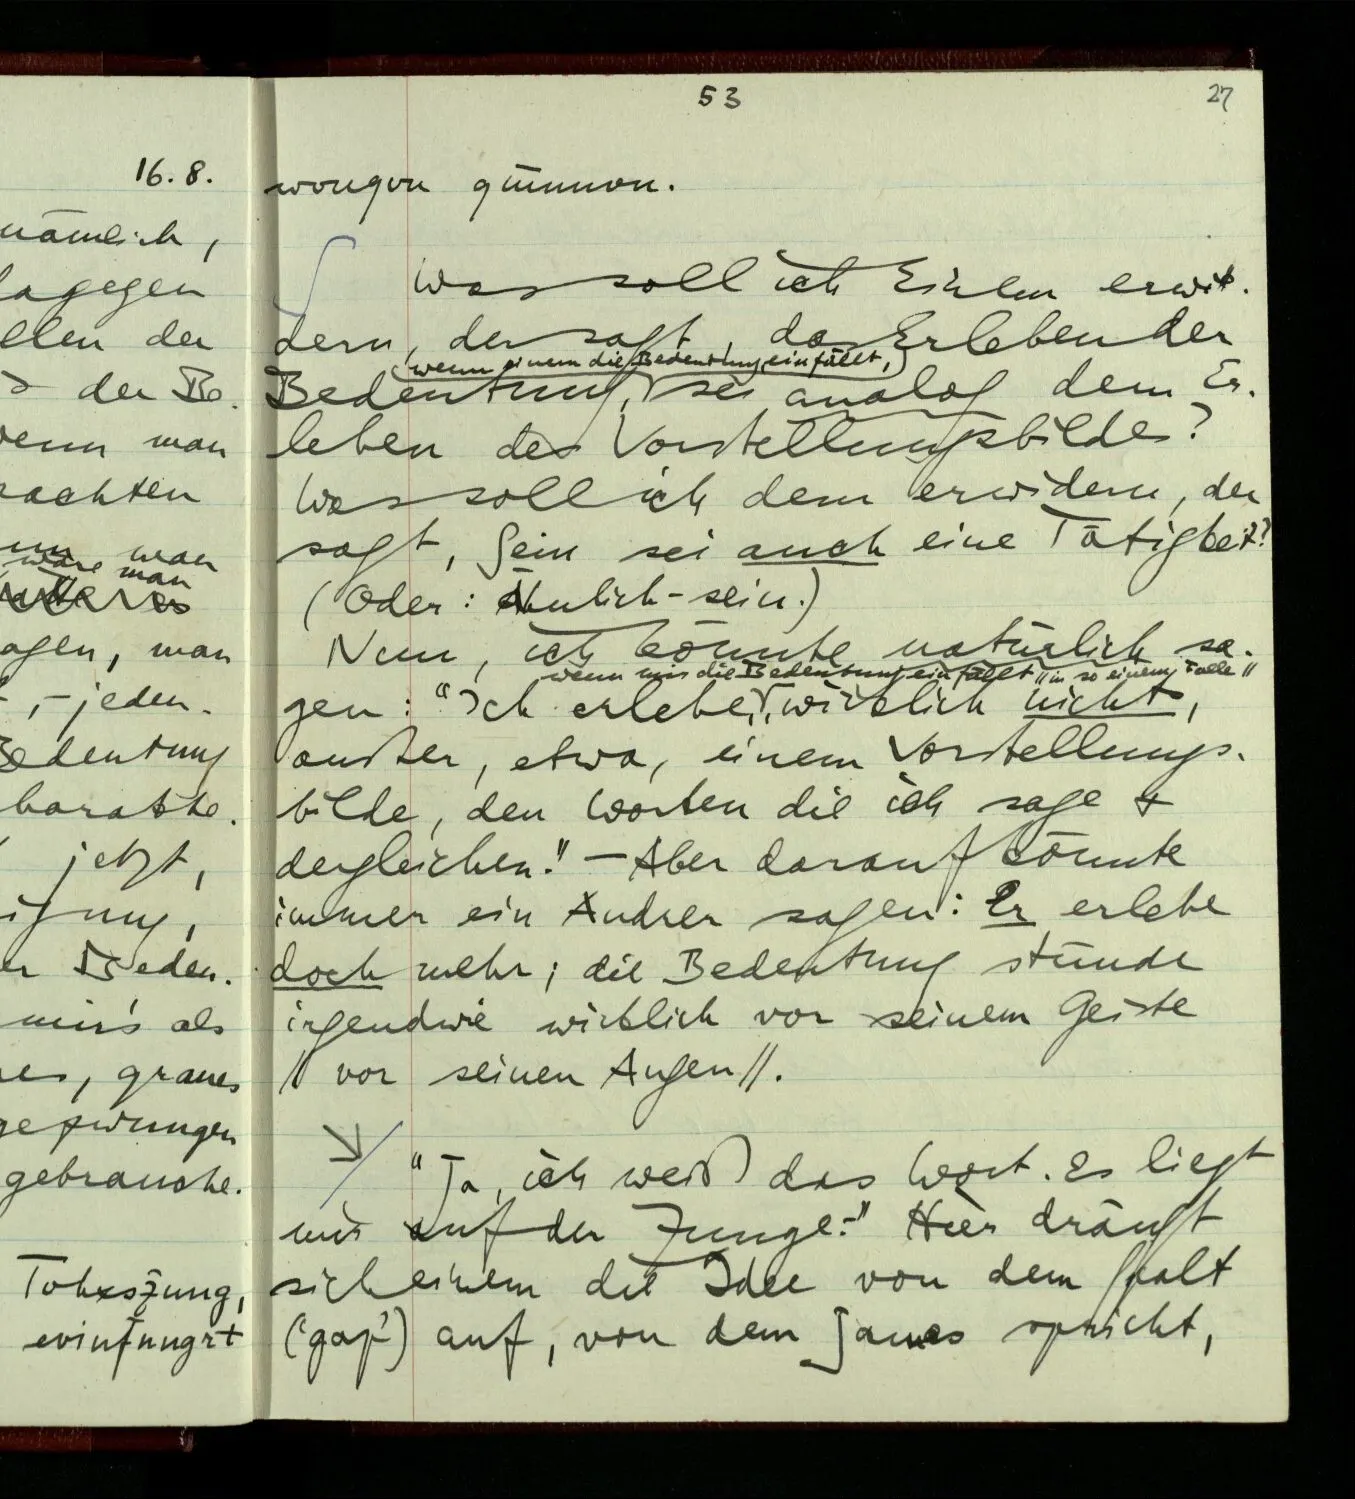 16.8.
nämlich,
dagegen
llen der
der Be-
wenn man
rachten
man
wäre man
es
agen, man
, – jeden-
Bedeutung
jetzt,
er Bedeu-
mir's als
es, graues
gezwungen
gebrauche.
53
27
wougvu
Was soll ich Einem erwi-
dern, der sagt, das Erleben der
(wenn einem die Bedeutung einfällt,)
Bedeutung, sei analog dem Er-
leben des Vorstellungsbildes?
Was soll ich dem erwidern, der
sagt, Sein sei auch eine Tätigkeit?
(Oder: Ähnlich-sein.)
Nun, ich könnte natürlich sa-
wenn mir die Bedeutung einfällt // in so einem Falle //
gen: “Ich erlebe, wirklich nicht,
außer, etwa, einem Vorstellungs-
bilde, den Worten die ich sage &
dergleichen.” – Aber darauf könnte
immer ein Andrer sagen: Er erlebe
doch mehr; die Bedeutung stünde
irgendwie wirklich vor seinem Geiste
// vor seinen Augen //.
“Ja, ich weiß das Wort. Es liegt
mir auf der Zunge.–” Hier drängt
sich einem die Idee von dem Spalt
(‘gap’) auf, von dem James spricht,